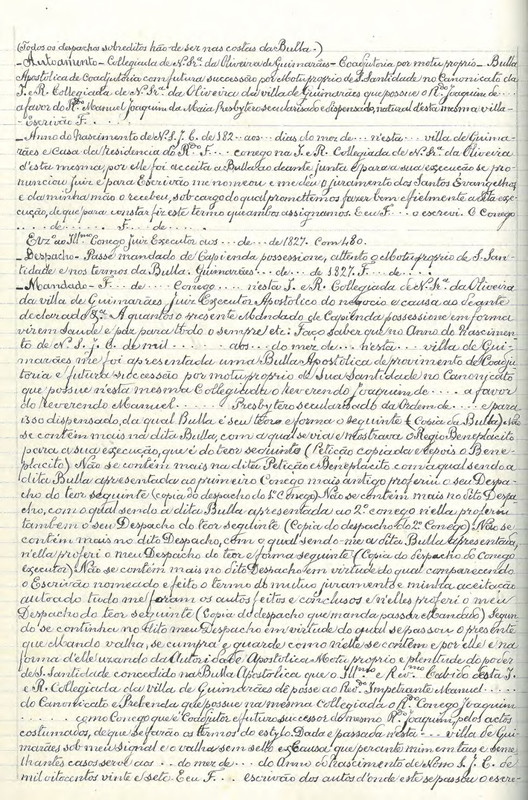 (Todos os despachos sobreditos hão de ser nas costas da Bulla.)
- Autoamento - Collegiada de N. Srª. da Oliveira de Guimarães - Coadjutoria por motu proprio - Bulla
Apostolica de Coadjutoria com futura successão por Motu proprio de S. Santidade no Canonicato da
I. e R. Collegiada de N. Srª. da Oliveira da villa de Guimarães que possue o Rdo. Joaquim de...
a favor do Rdo. Manuel Joaquim da Maia, Presbytero secularisado e dispensado, natural d'esta mesma villa -
Escrivão F. . . . .
- Anno do Nascimento de N. S. J. C. de 182.. aos... dias do mez de... n'esta... villa de Guima-
rães e Casa da Residencia do Rdo. F... conego na I. e R. Collegiada de N. Srª. da Oliveira
d'esta mesma, por elle foi acceita a Bulla ao deante junta e para a sua execução se pro-
nunciou juiz e para Escrivão me nomeou e me deu o juramento dos Santos Evangelhos,
e da minha mão o recebeu, sob cargo do qual promettemos fazer bem e fielmente a dita exe-
cução, de que para constar fiz este termo que ambos assignamos. E eu F... o escrevi. O Conego
... de... F... de...
Ev.zº. ao Illmo. Conego Juiz Executor aos... de... de 1827. Com 480.
- Despacho - Passe mandado de Capienda possessione, attento o Motu proprio de S. San-
tidade e nos termos da Bulla. Guimarães... de... de 1827. F... de...
- Mandado - F... de... Conego... n'esta I. e R. Collegiada de N. Srª. da Oliveira
da villa de Guimarães Juiz Executor Apostolico do negocio e causa ao deante
declarado &ª. A quantos o presente Mandado de Capienda possessione em forma
virem Saude e paz para todo o sempre etc: Faço saber que no Anno do Nascimen-
to de N. S. J. C. de mil... aos... do mez de... n'esta... villa de Gui-
marães me foi apresentada uma Bulla Apostolica de provimento de Coadju-
toria e futura successão por motu proprio de Sua Santidade no Canonicato
que possue n'esta mesma Collegiada o Reverendo Joaquim de... a favor
do Reverendo Manuel... Presbytero secularisado da Ordem de... e para
isso dispensado, da qual Bulla é seu theor e forma o seguinte (Copia da Bulla) Não
se contém mais na dita Bulla, com a qual se via e mostrava o Regio Beneplacito
para a sua execução, que é do teor seguinte (Petição copiada e depois o Bene-
placito) Não se contém mais na dita Petição e Beneplacito com a qual sendo a
dita Bulla apresentada ao primeiro Conego mais antigo proferiu o seu Despa-
cho do teor seguinte (Copia do despacho do 1º. Conego) Não se contém mais no dito Despa-
cho, com o qual sendo a dita Bulla apresentada ao 2º. conego n'ella proferiu
tambem o seu Despacho do teor seguinte (Copia do despacho do 2º. Conego) Não se
contém mais no dito Despacho, com o qual sendo-me a dita Bulla apresentada,
n'ella proferi o meu Despacho do teor e forma seguinte (Copia do Despacho do Conego
executor) Não se contém mais no dito Despacho em virtude do qual comparecendo
o Escrivão nomeado e feito o termo do mutuo juramento e minha acceitação
autoado tudo me foram os autos feitos e conclusos e n'elles proferi o meu
Despacho do teor seguinte (Copia do despacho que manda passar o Mandado) Segun-
do se continha no dito meu Despacho em virtude do qual se passou o presente
que Mando valha, se cumpra e guarde como n'elle se contém e por elle e na
forma d'elle uzando da Autoridade Apostolica Motu proprio e plenitude do poder
de S. Santidade concedido na Bulla Apostolica, que o Illmo. e Revmo. Cabido desta I.
e R. Collegiada da villa de Guimarães dê posse ao Rdo. Impetrante Manuel...
do Canonicato e Prebenda que possue na mesma Collegiada o Rdo. Conego Joaquim
... como Conego que é Coadjutor e futuro successor do mesmo Rdo. Joaquim, pelos actos
costumados, de que se farão os termos do estylo. Dada e passada n'esta... villa de Gui-
marães sob meu signal e o valha sem sello ex Causa que perante mim em taes e seme-
lhantes casos serve aos... do mez de... do Anno do Nascimento de Nosso S. J. C. de
mil oitocentos vinte e sete. E eu F... escrivão dos autos d'onde este se passou o escre-